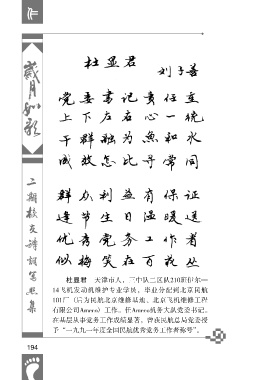 作
岁月如歌
二期校友诗词笔照集
杜显君
刘子善
党委书记责任重
上下左右心一统
干群融为鱼和水
成效怎比寻常同
群众利益有保证
逢节生日温暖送
优秀党务工作者
似梅笑在百花丛
杜显君 天津市人,三中队二区队210班伊尔—
14飞机发动机维护专业学员,毕业分配到北京民航
101厂(后为民航北京维修基地、北京飞机维修工程
有限公司Ameco)工作。任Ameco机务大队党委书记。
在基层从事党务工作成绩显著,曾被民航总局党委授
予“一九九一年度全国民航优秀党务工作者称号”。
194